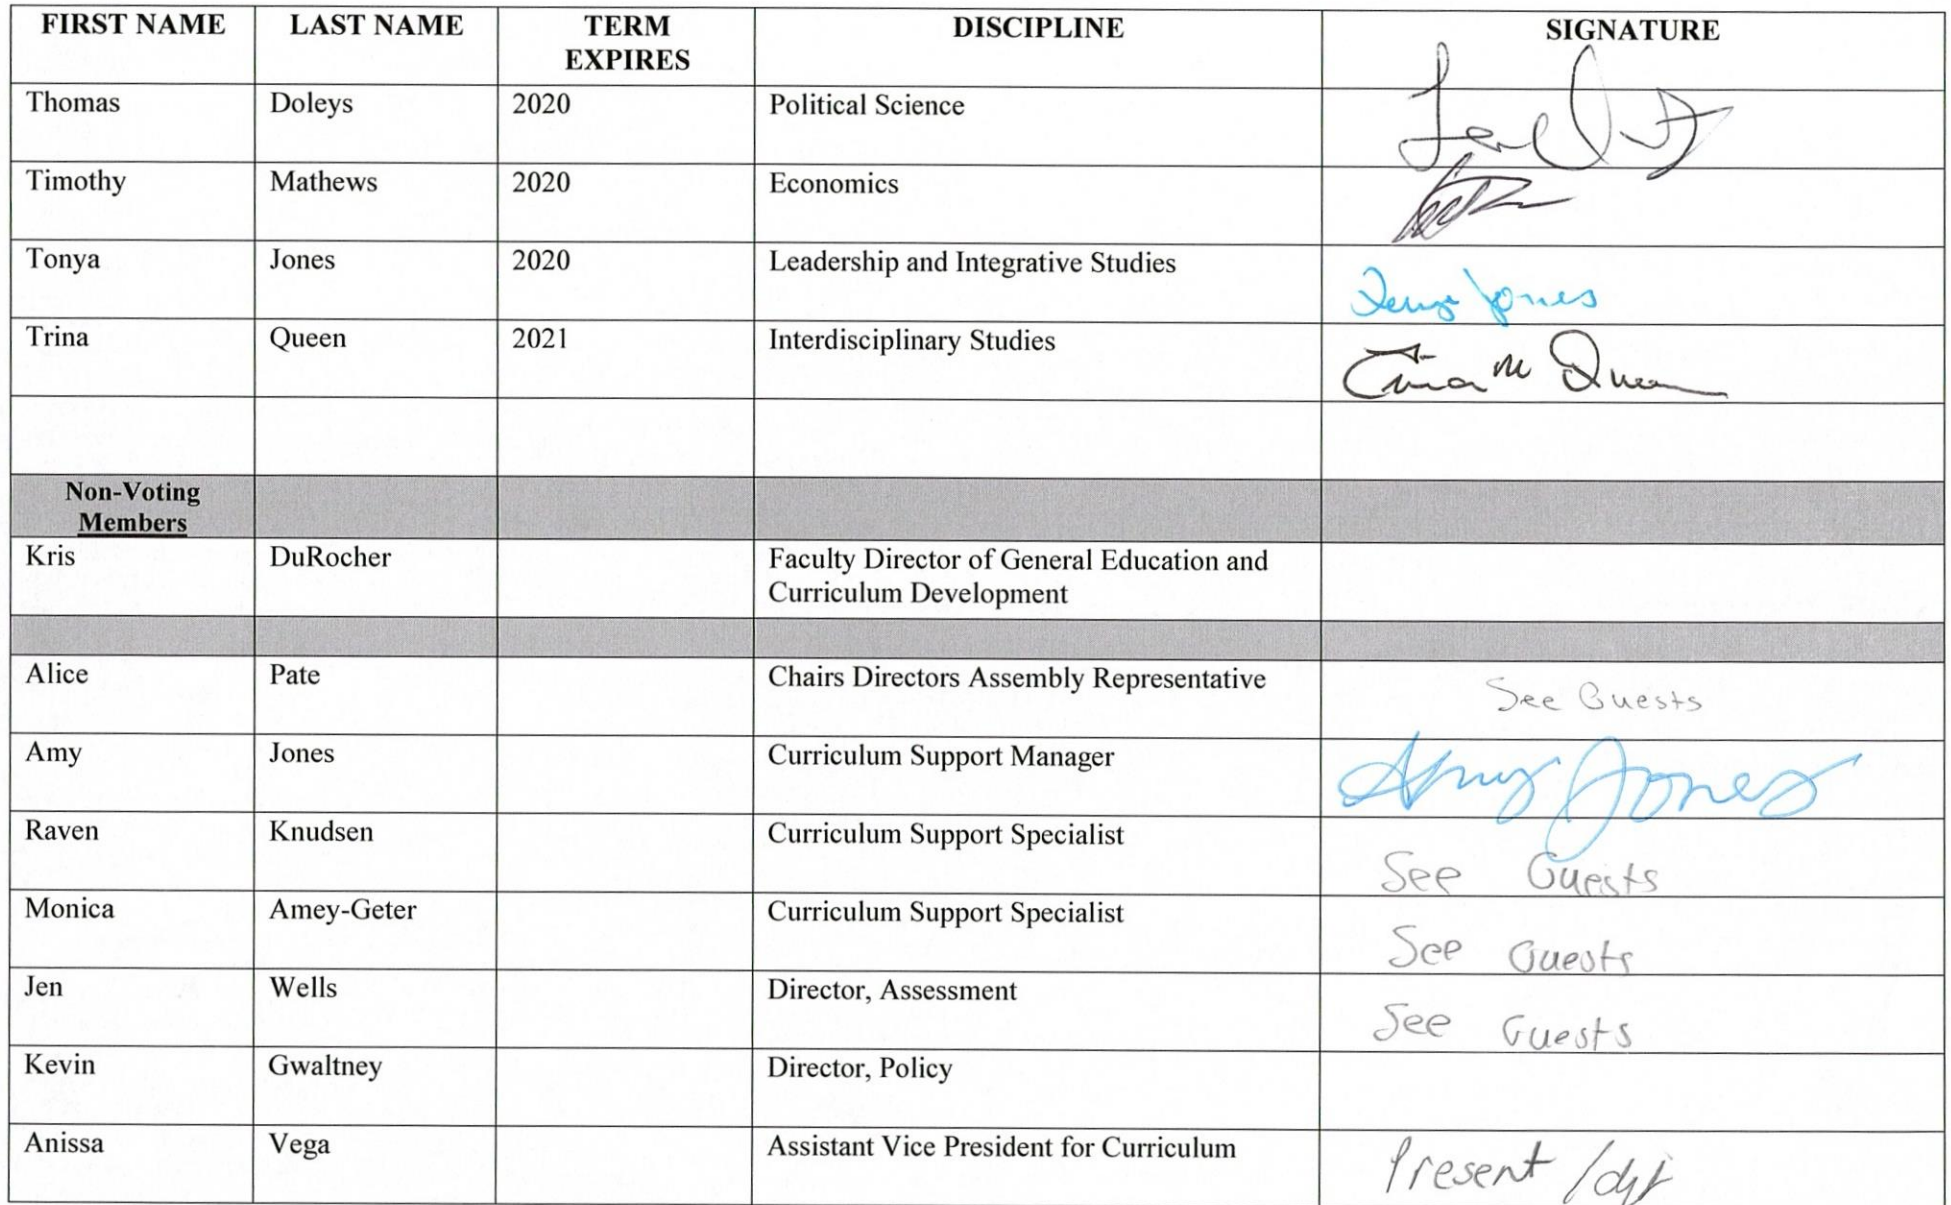 FIRST NAME LAST NAME TERM DISCIPLINE SIGNATURE
EXPIRES
Thomas Doleys 2020 Political Science
Timothy Mathews 2020 Economics
Tonya Jones 2020 Leadership and Integrative Studies
Tonya Jones
Trina Queen 2021 Interdisciplinary Studies
Trina M Queen
Non-Voting
Members
Kris DuRocher Faculty Director of General Education and
Curriculum Development
Alice Pate Chairs Directors Assembly Representative
See Guests
Amy Jones Curriculum Support Manager
Amy Jones
Raven Knudsen Curriculum Support Specialist
See Guests
Monica Amey-Geter Curriculum Support Specialist
See Guests
Jen Wells Director, Assessment
See Guests
Kevin Gwaltney Director, Policy
Anissa Vega Assistant Vice President for Curriculum
Present